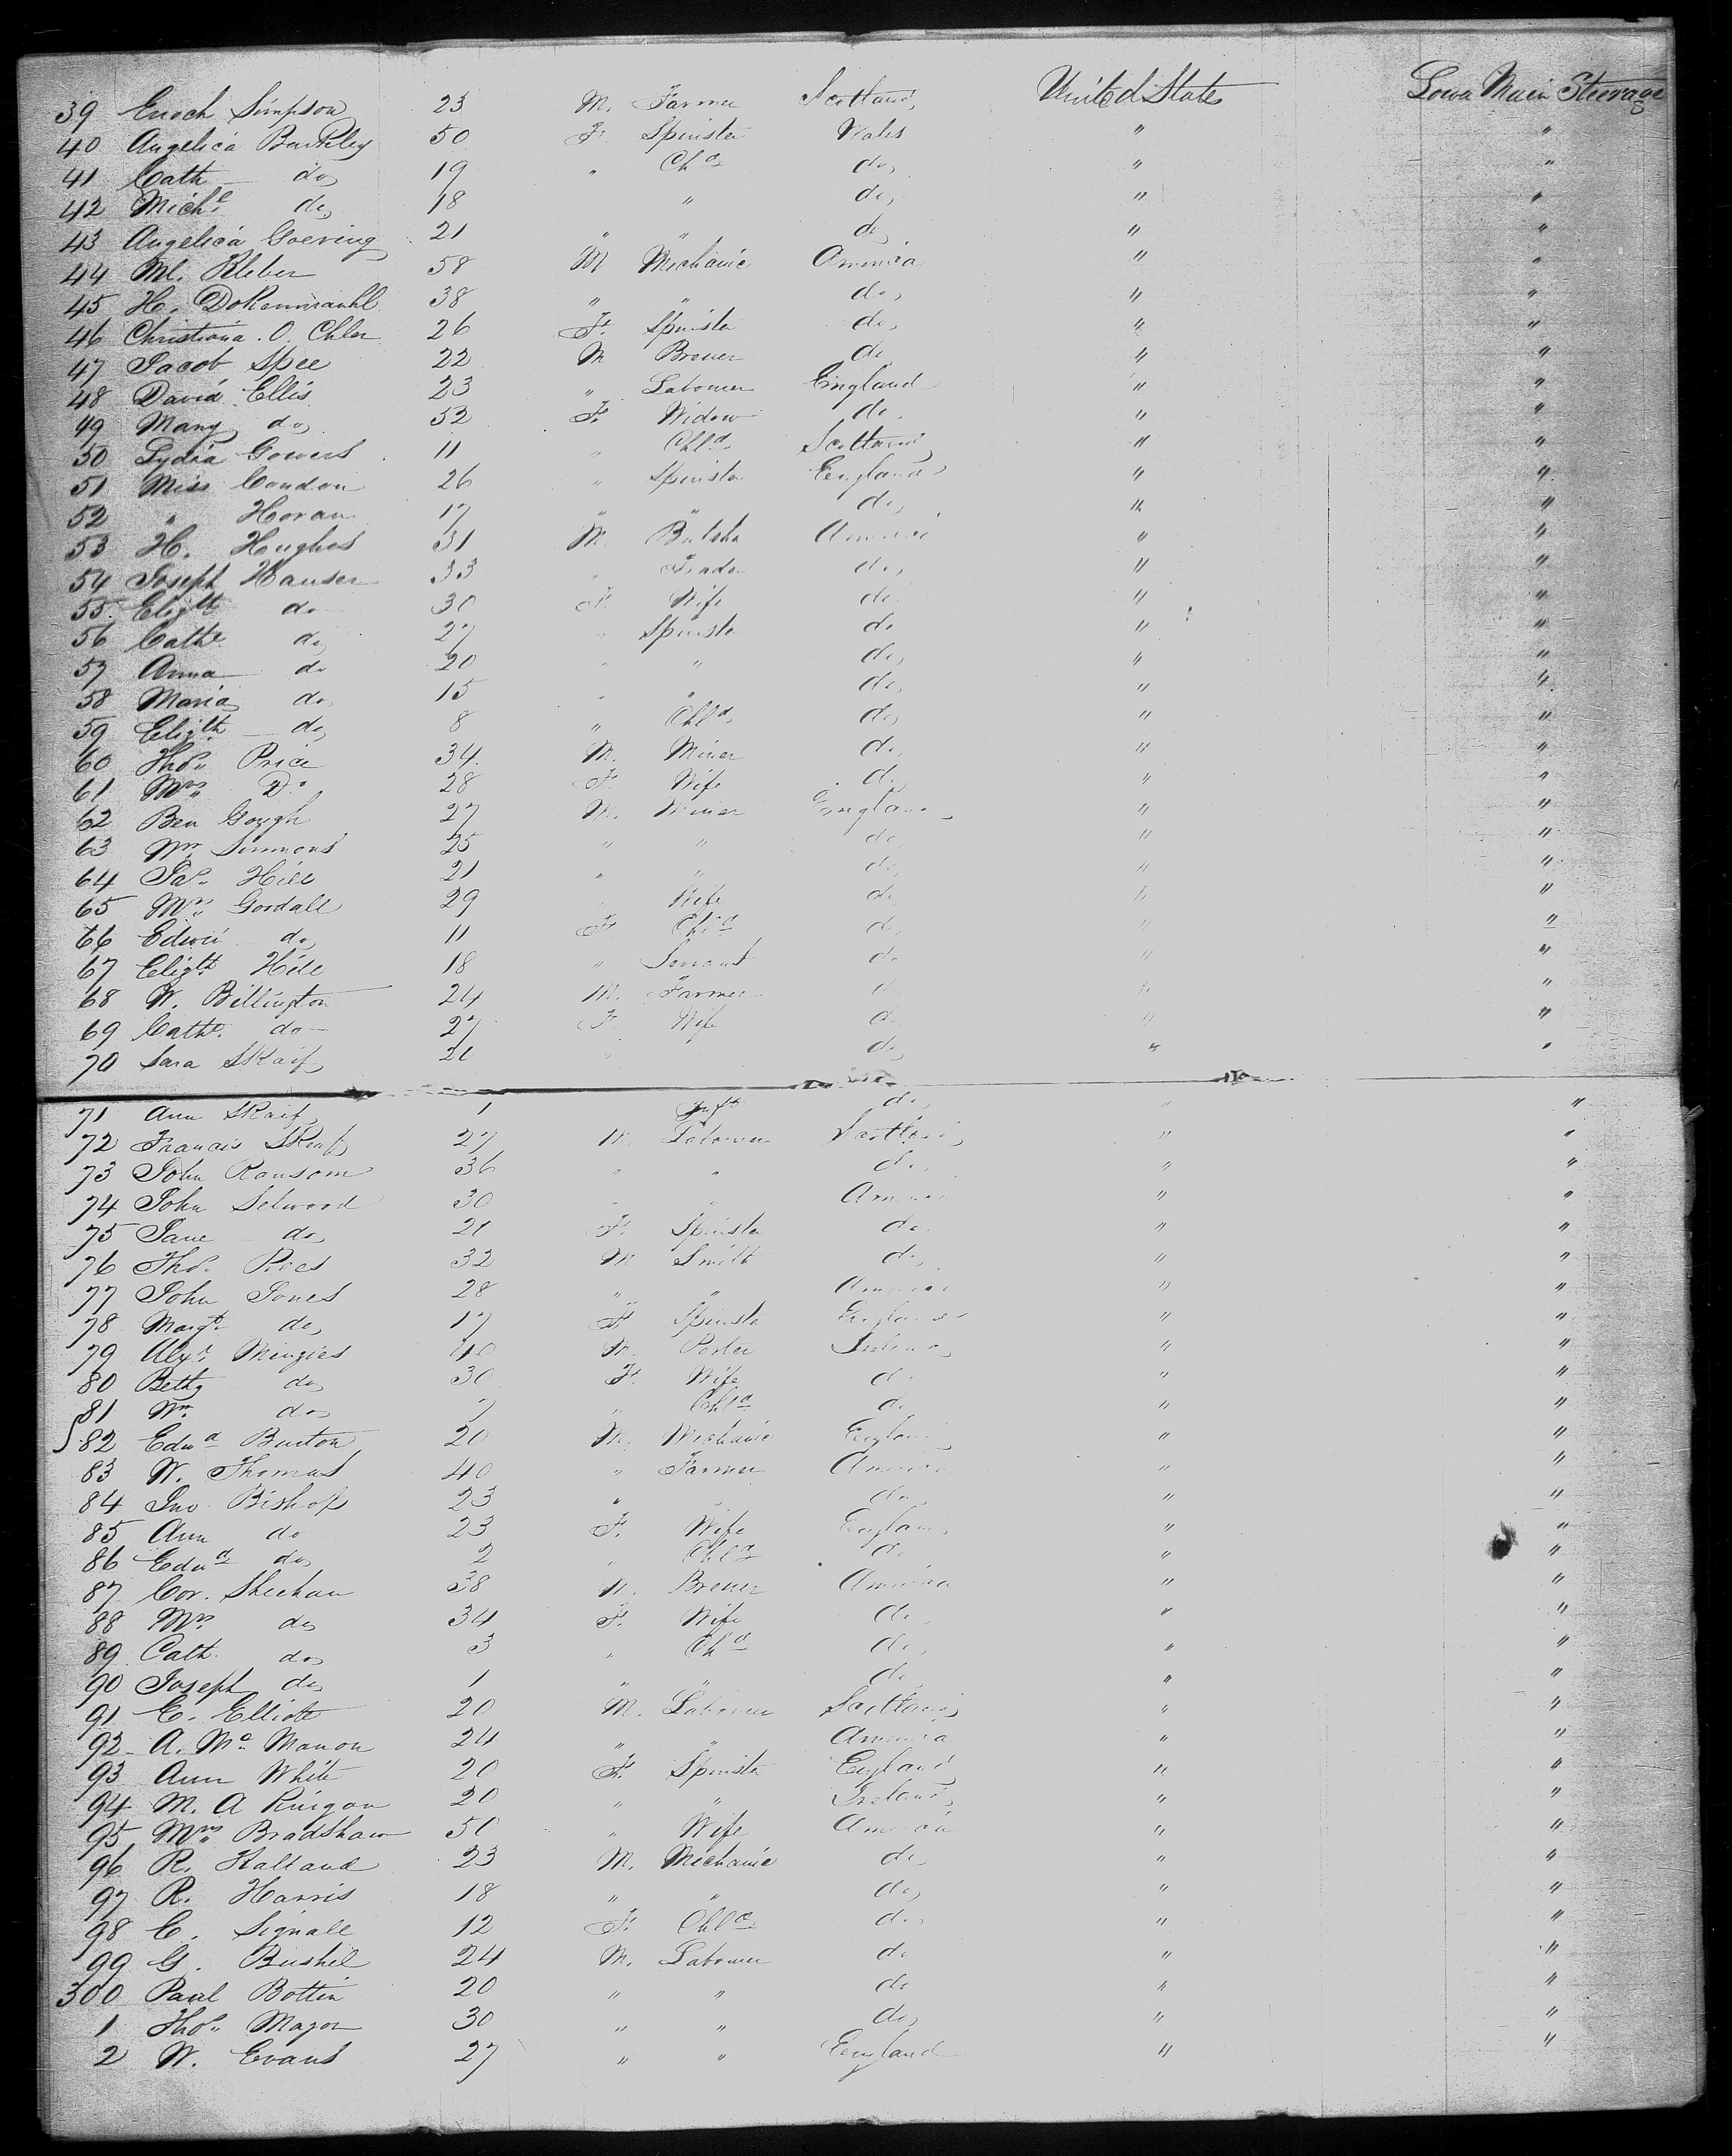 39 Enoch Simpson 23 M. Farmer Scotland United States Lower Main Steerage
40 Angelica Burkley 50 F. Spinster Wales " "
41 Cath do 19 " Chd do " "
42 Miche do 18 " do " "
43 Angelica Goering 21 " " do " "
44 Ml. Kleber 58 M Mechanic America " "
45 H. 38 " " do " "
46 Christiana O. Chler 26 F. Spinster do " "
47 Jacob Spee 22 M Brewer do " "
48 David Ellis 23 " Labourer England " "
49 Mary do 52 F. Widow do " "
50 Lydia Gowers 11 " Chld Scotland " "
51 Miss Condon 26 " Spinster England " "
52 " Horan 17 " " do " "
53 H. Hughes 31 M. Butcher America " "
54 Joseph Hauser 33 " Trader do " "
55 Elizth do 30 F. Wife do " "
56 Cathe do 27 " Spinster do " "
57 Anna do 20 " " do " "
58 Maria do 15 " " do " "
59 Elizth do 8 " Chld do " "
60 Thos. Price 34 M. Miner do " "
61 Mrs. Do 28 F. Wife do " "
62 Ben Gough 27 M. Miner England " "
63 Wm Simmons 25 " " do " "
64 Jas. Hill 21 " " do " "
65 Mrs. Goodall 29 " Wife do " "
66 Edwin do 11 F. Chld do " "
67 Elizth Hill 18 " Servant do " "
68 W. Billington 24 M. Farmer do " "
69 Cathe. do 27 F. Wife do " "
70 Sara Skaif 26 " do " "
71 Ann Skaif 1 Inft do " "
72 Francis Skaif 27 M. Labourer Scotland " "
73 John Ransom 36 " " do " "
74 John Selwood 30 " " America " "
75 Jane do 21 F. Spinster do " "
76 Thos. Rees 32 M Smith do " "
77 John Jones 28 " " America " "
78 Margt do 17 F. Spinster England " "
79 Alexr. Minzies 40 M. Porter Ireland " "
80 Betty do 30 F. Wife do " "
81 Wm. do 7 " Chld do " "
82 Edwd Burton 20 M. Mechanic England " "
83 W. Thomas 40 " Farmer America " "
84 Jno Bishop 23 " " do " "
85 Ann do 23 F. Wife England " "
86 Edwd do 2 " Chld do " "
87 Cor. Sheehan 38 M. Brewer America " "
88 Mrs. do 34 F. Wife do " "
89 Cath. do 3 " Chd do " "
90 Joseph do 1 " " do " "
91 E. Elliott 20 M. Labourer Scotland " "
92 A. Mc Manon 24 " " America " "
93 Ann White 20 F. Spinster England " "
94 M. A 20 " " Ireland " "
95 Mrs. Bradshaw 50 " Wife America " "
96 R. Kalland 23 M. Mechanic do " "
97 R. Harris 18 " " do " "
98 C. Signall 12 F. Chld do " "
99 G. Bushel 24 M. Labourer do " "
300 Paul Bottin 20 " " do " "
1 Thos. Mayor 30 " " do " "
2 W. Evans 27 " " England " "